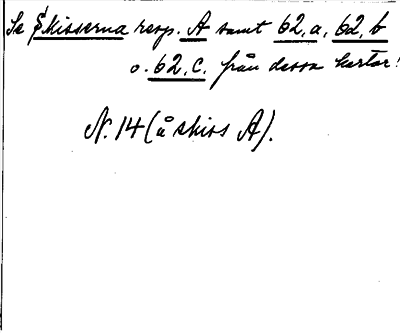 Se Skisserna resp. A samt 62.a, 62.b
o. 62.c. från dessa kartor!
N. 14 (å skiss A).